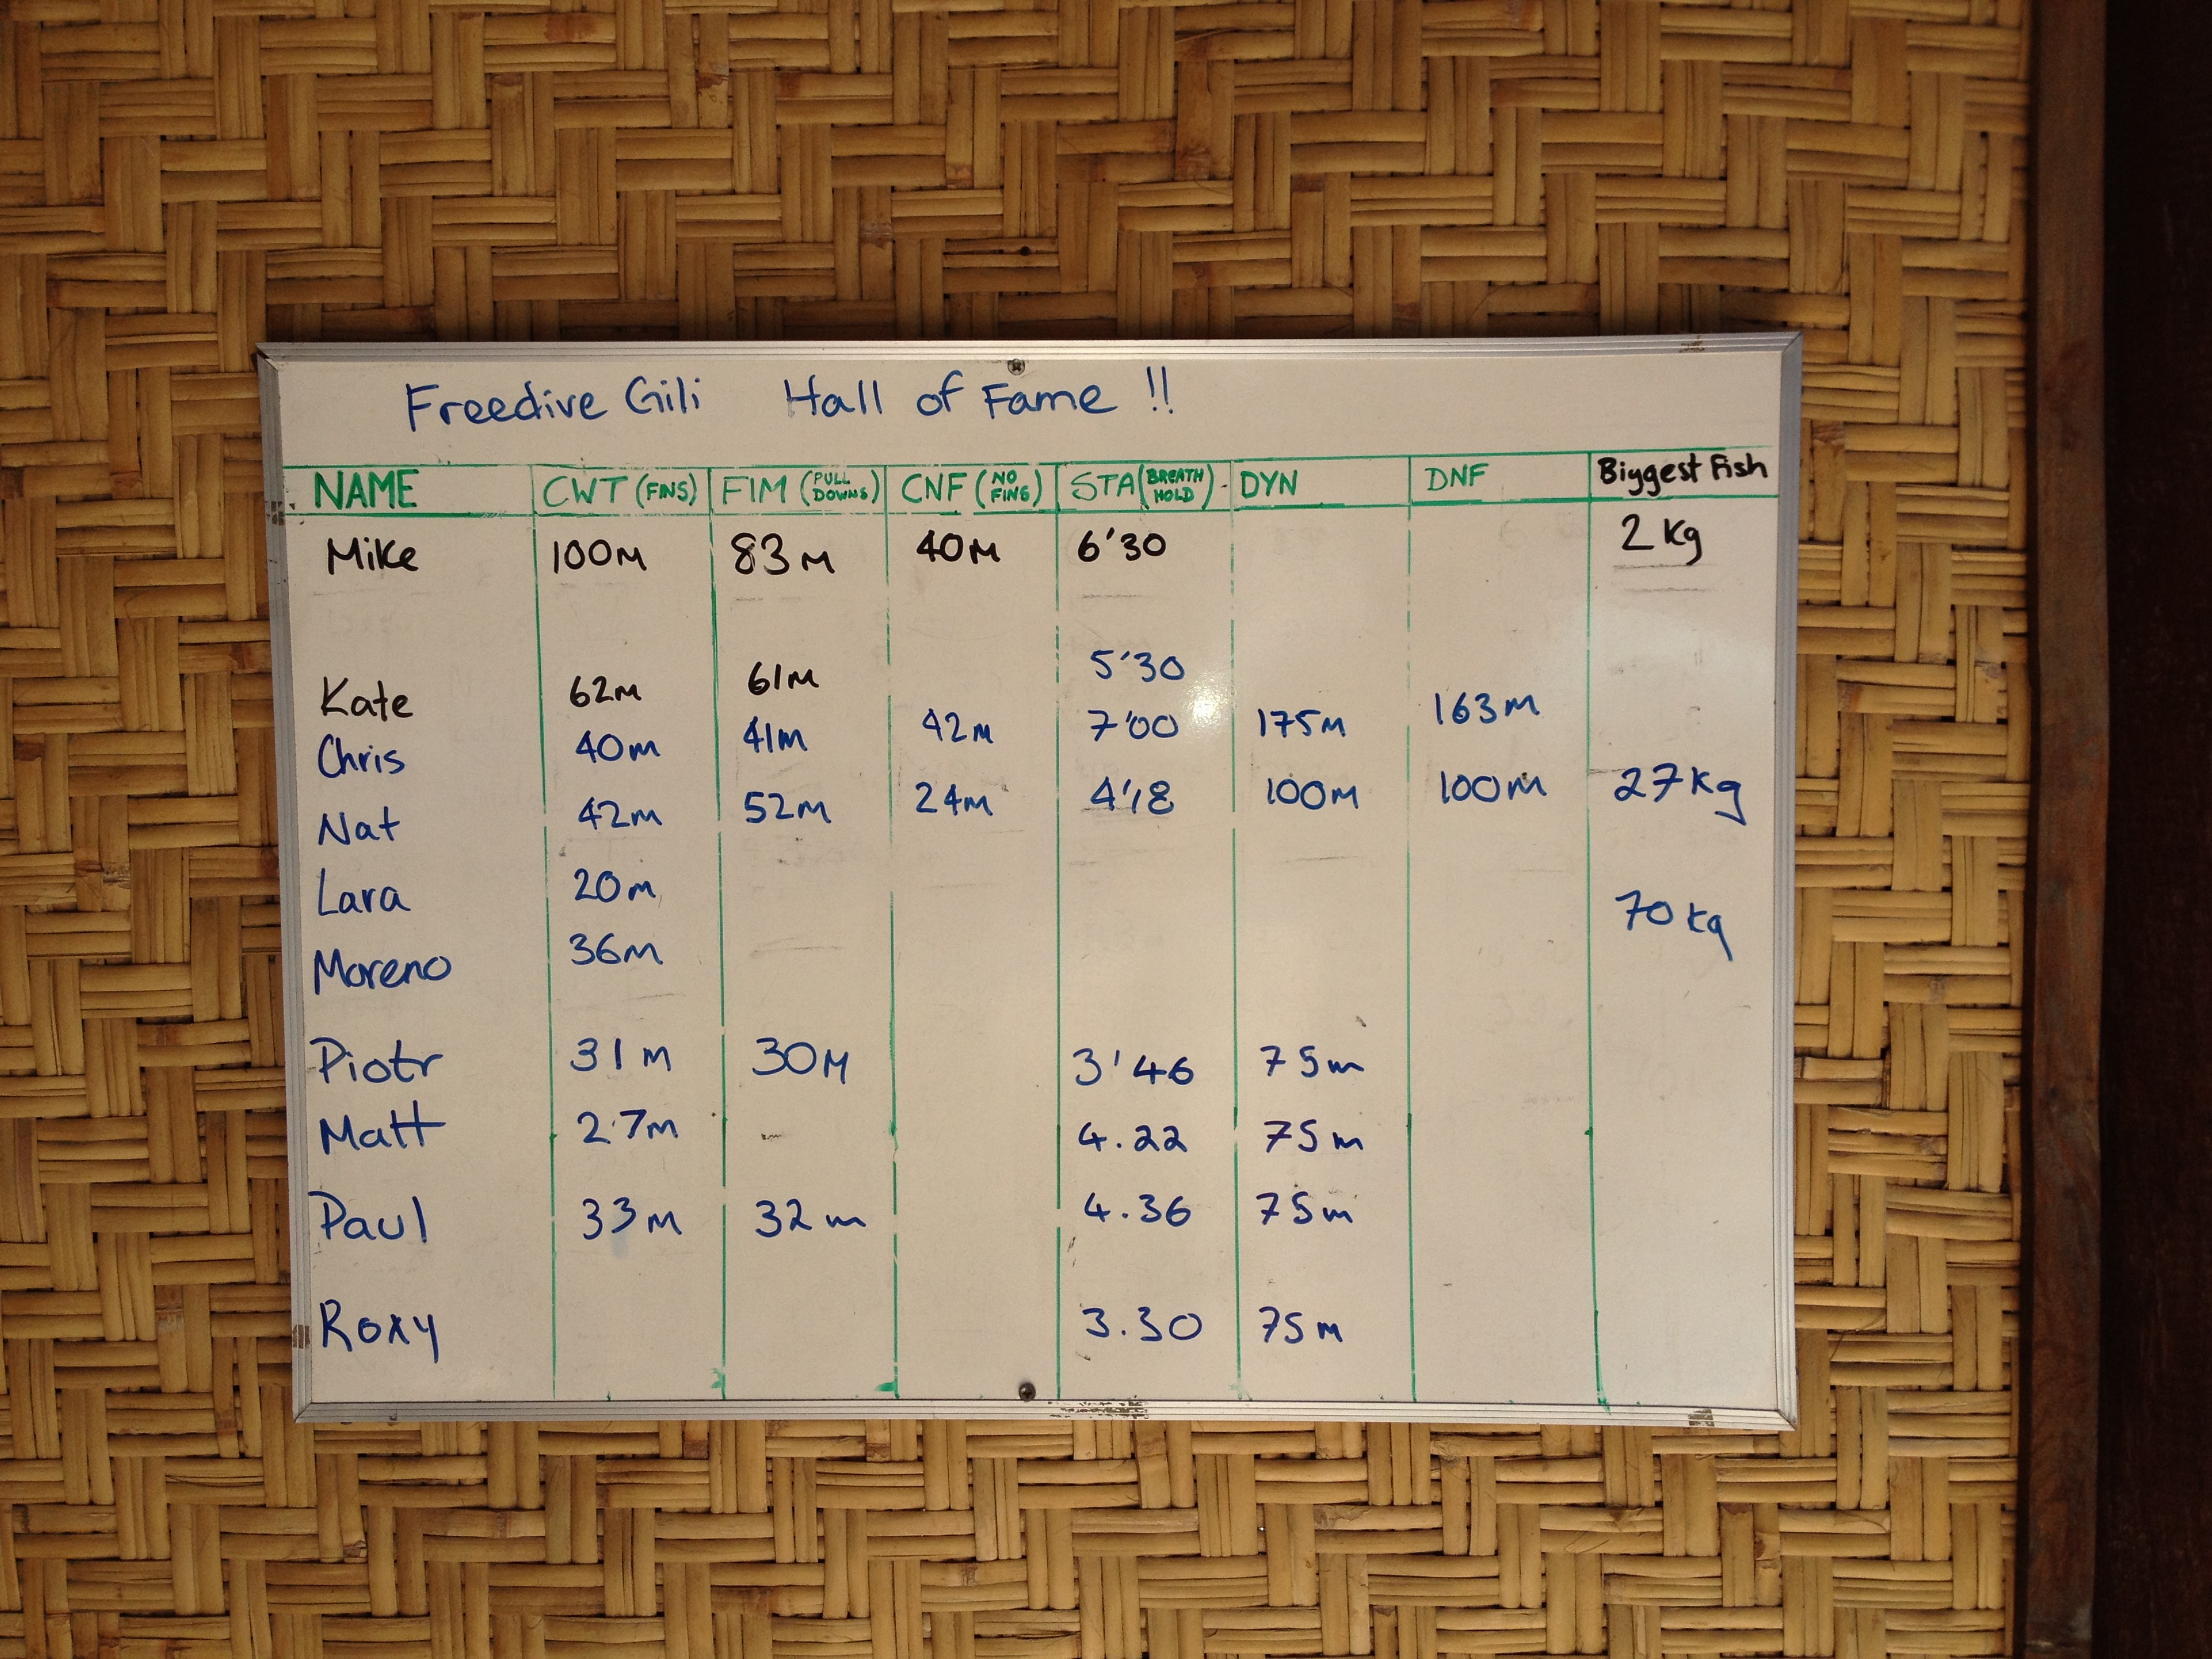 Freedive Gili Hall of Fame !!
NAME CWT (FINS) FIM (PULL DOWNS) CNF (NO FINS) STA (BREATH HOLD) DYN DNF Biggest Fish
Mike 100M 83M 40M 6'30 2 kg
Kate 62M 61M 5'30
Chris 40M 41M 42M 7'00 175M 163M
Nat 42M 52M 24M 4'18 100M 100M 27kg
Lara 20M
Moreno 36M 70kg
Piotr 31M 30M 3'46 75m
Matt 27M - 4.22 75m
Paul 33M 32m 4.36 75m
Roxy 3.30 75M